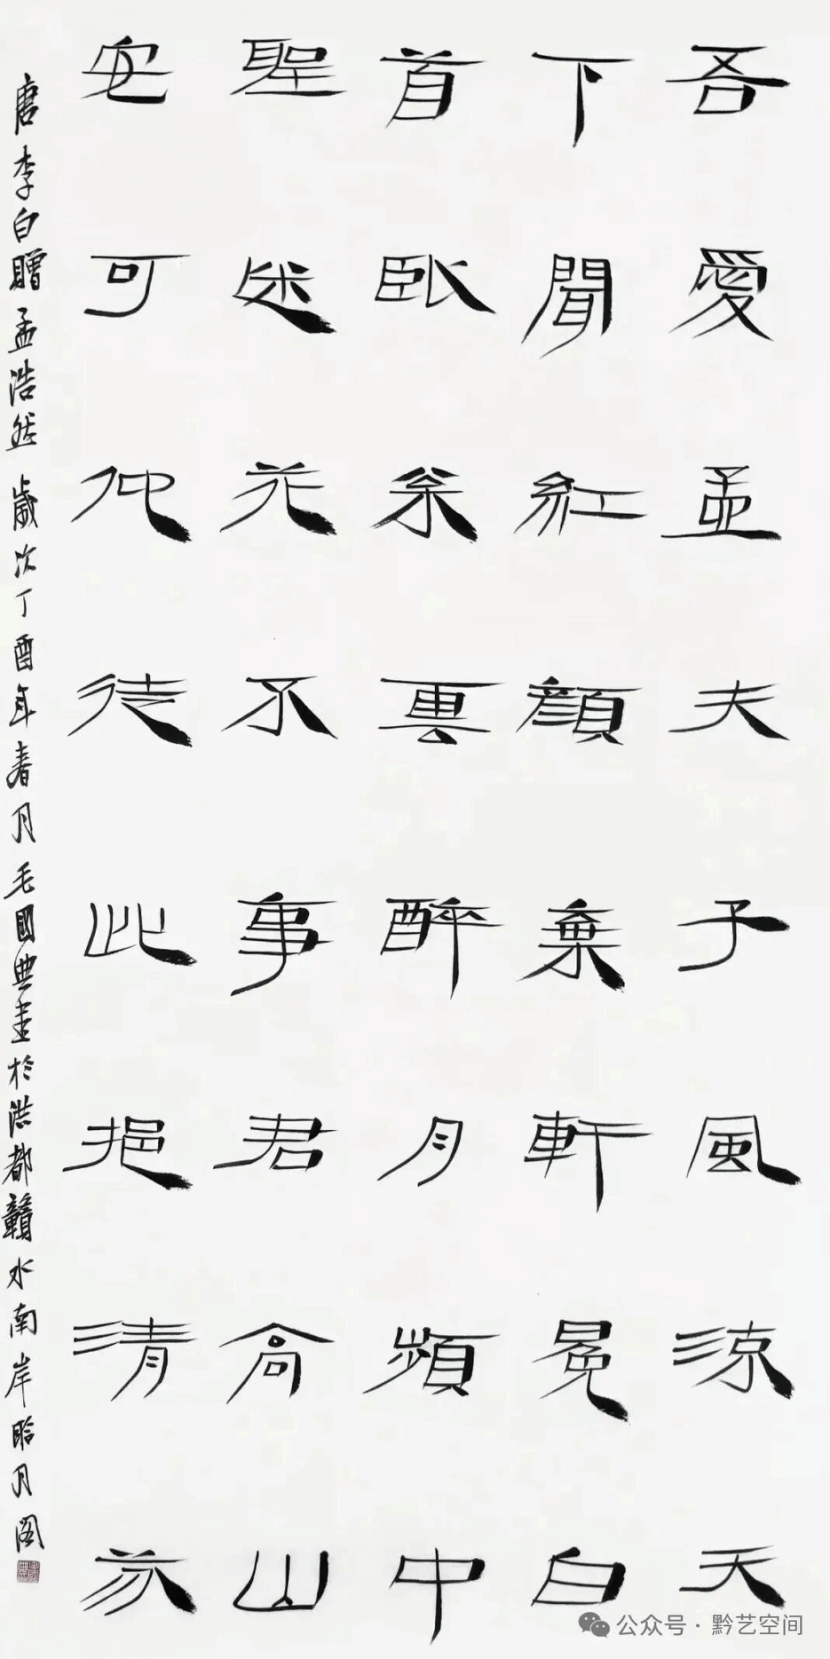 吾愛孟夫子風涼天
下聞紅顏棄軒冕白
首臥枀雲醉月頻中
聖迷花不事君高山
安可仰徒此挹清芬
唐李白贈孟浩然歲次丁酉年春月毛國典書於洪都贛水南岸聆月閣
公众号 · 黔艺空间